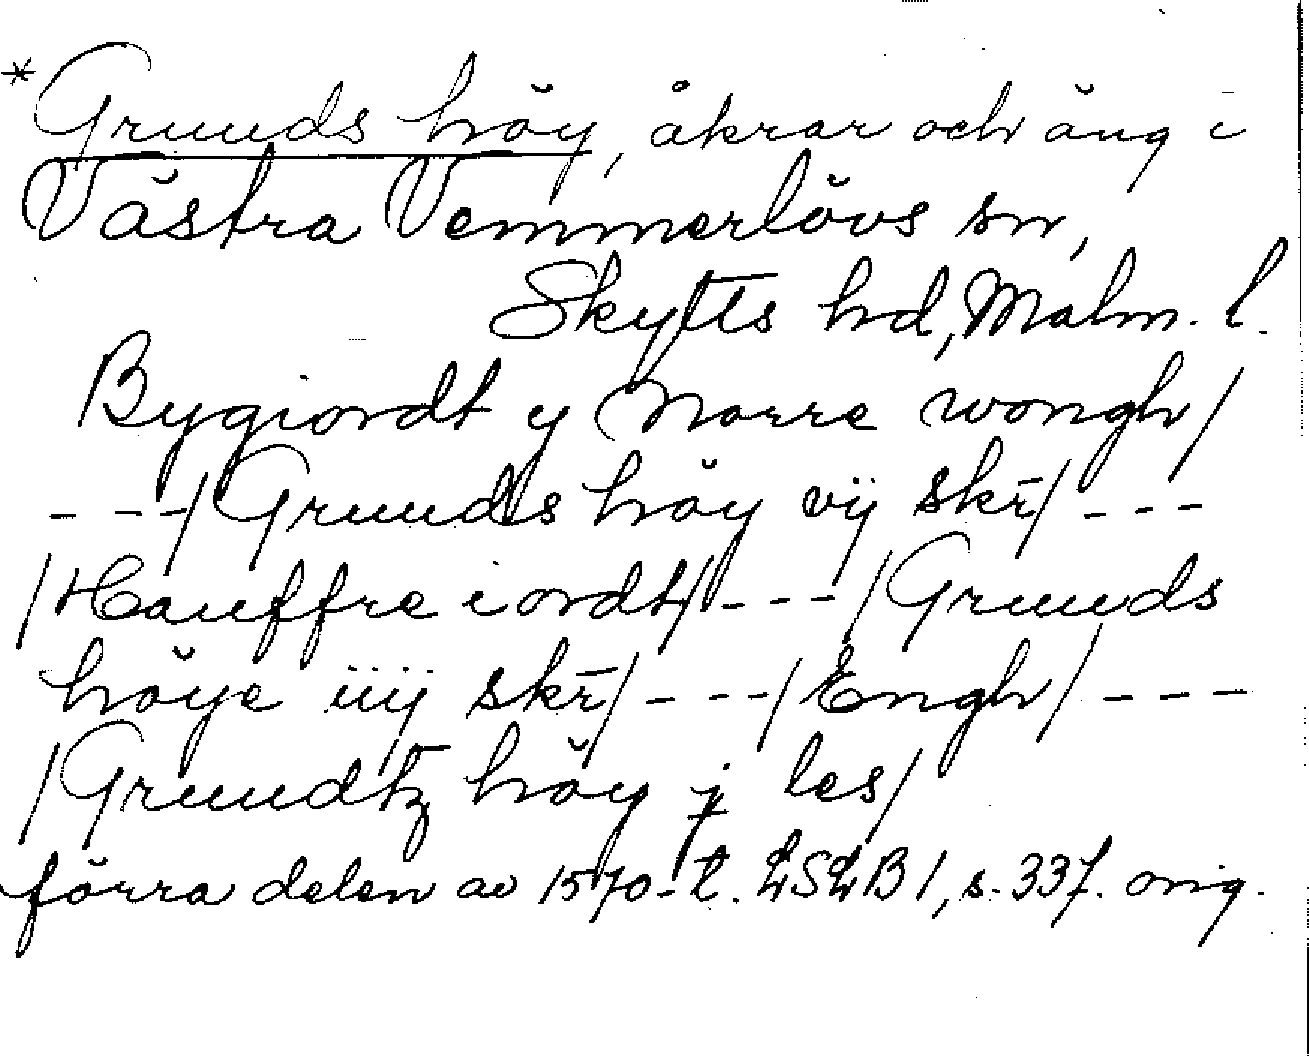 *Grunds höy, åkrar och äng i
Västra Vemmerlövs sn,
Skytts hd, Malm. l.
Bygiordt y Norre wongh/
---/Grunds höy vÿ skr̄/---
/Hauffre iordt/---/Grunds
höye iiÿ skr̄/---/Engh/---
/Grundtz höy j les/
förra delen av 1570-t. LSLB 1, s. 337. orig.